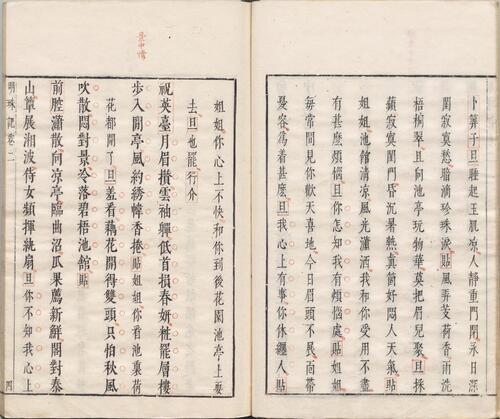 卜算子旦睡起玉肌凉人靜重門閉永日深
閨寂寞愁暗滴珍珠淚貼風弄芰荷香雨洗
梧桐翠且向池亭玩物華莫把眉兒聚旦採
蘋寂寞閉門昏沉暑熱真箇好悶人天氣貼
姐姐池館清凉風光瀟洒我和你受用不盡
有甚麽煩惱旦你怎知我有煩惱處貼姐姐
每常間見你歡天喜地今日眉頭不展面帶
憂容為着甚麽旦我心上有事你休纏人貼
姐姐你心上不快和你到後花園池亭上耍
去旦也罷行介
祝英臺月眉攢雲袖嚲低首損春妍粧罷層樓
步入閒亭風約綉幃香捲貼姐姐你看池裏荷
花都開了旦羞看藕花開得雙頭只怕秋風
吹散悶對景冷落碧梧池館貼
前腔瀟散向凉亭臨曲沼瓜果薦新鮮閣對泰
山簟展湘波侍女頻揮紈扇旦你不知我心上
明珠記卷二
四